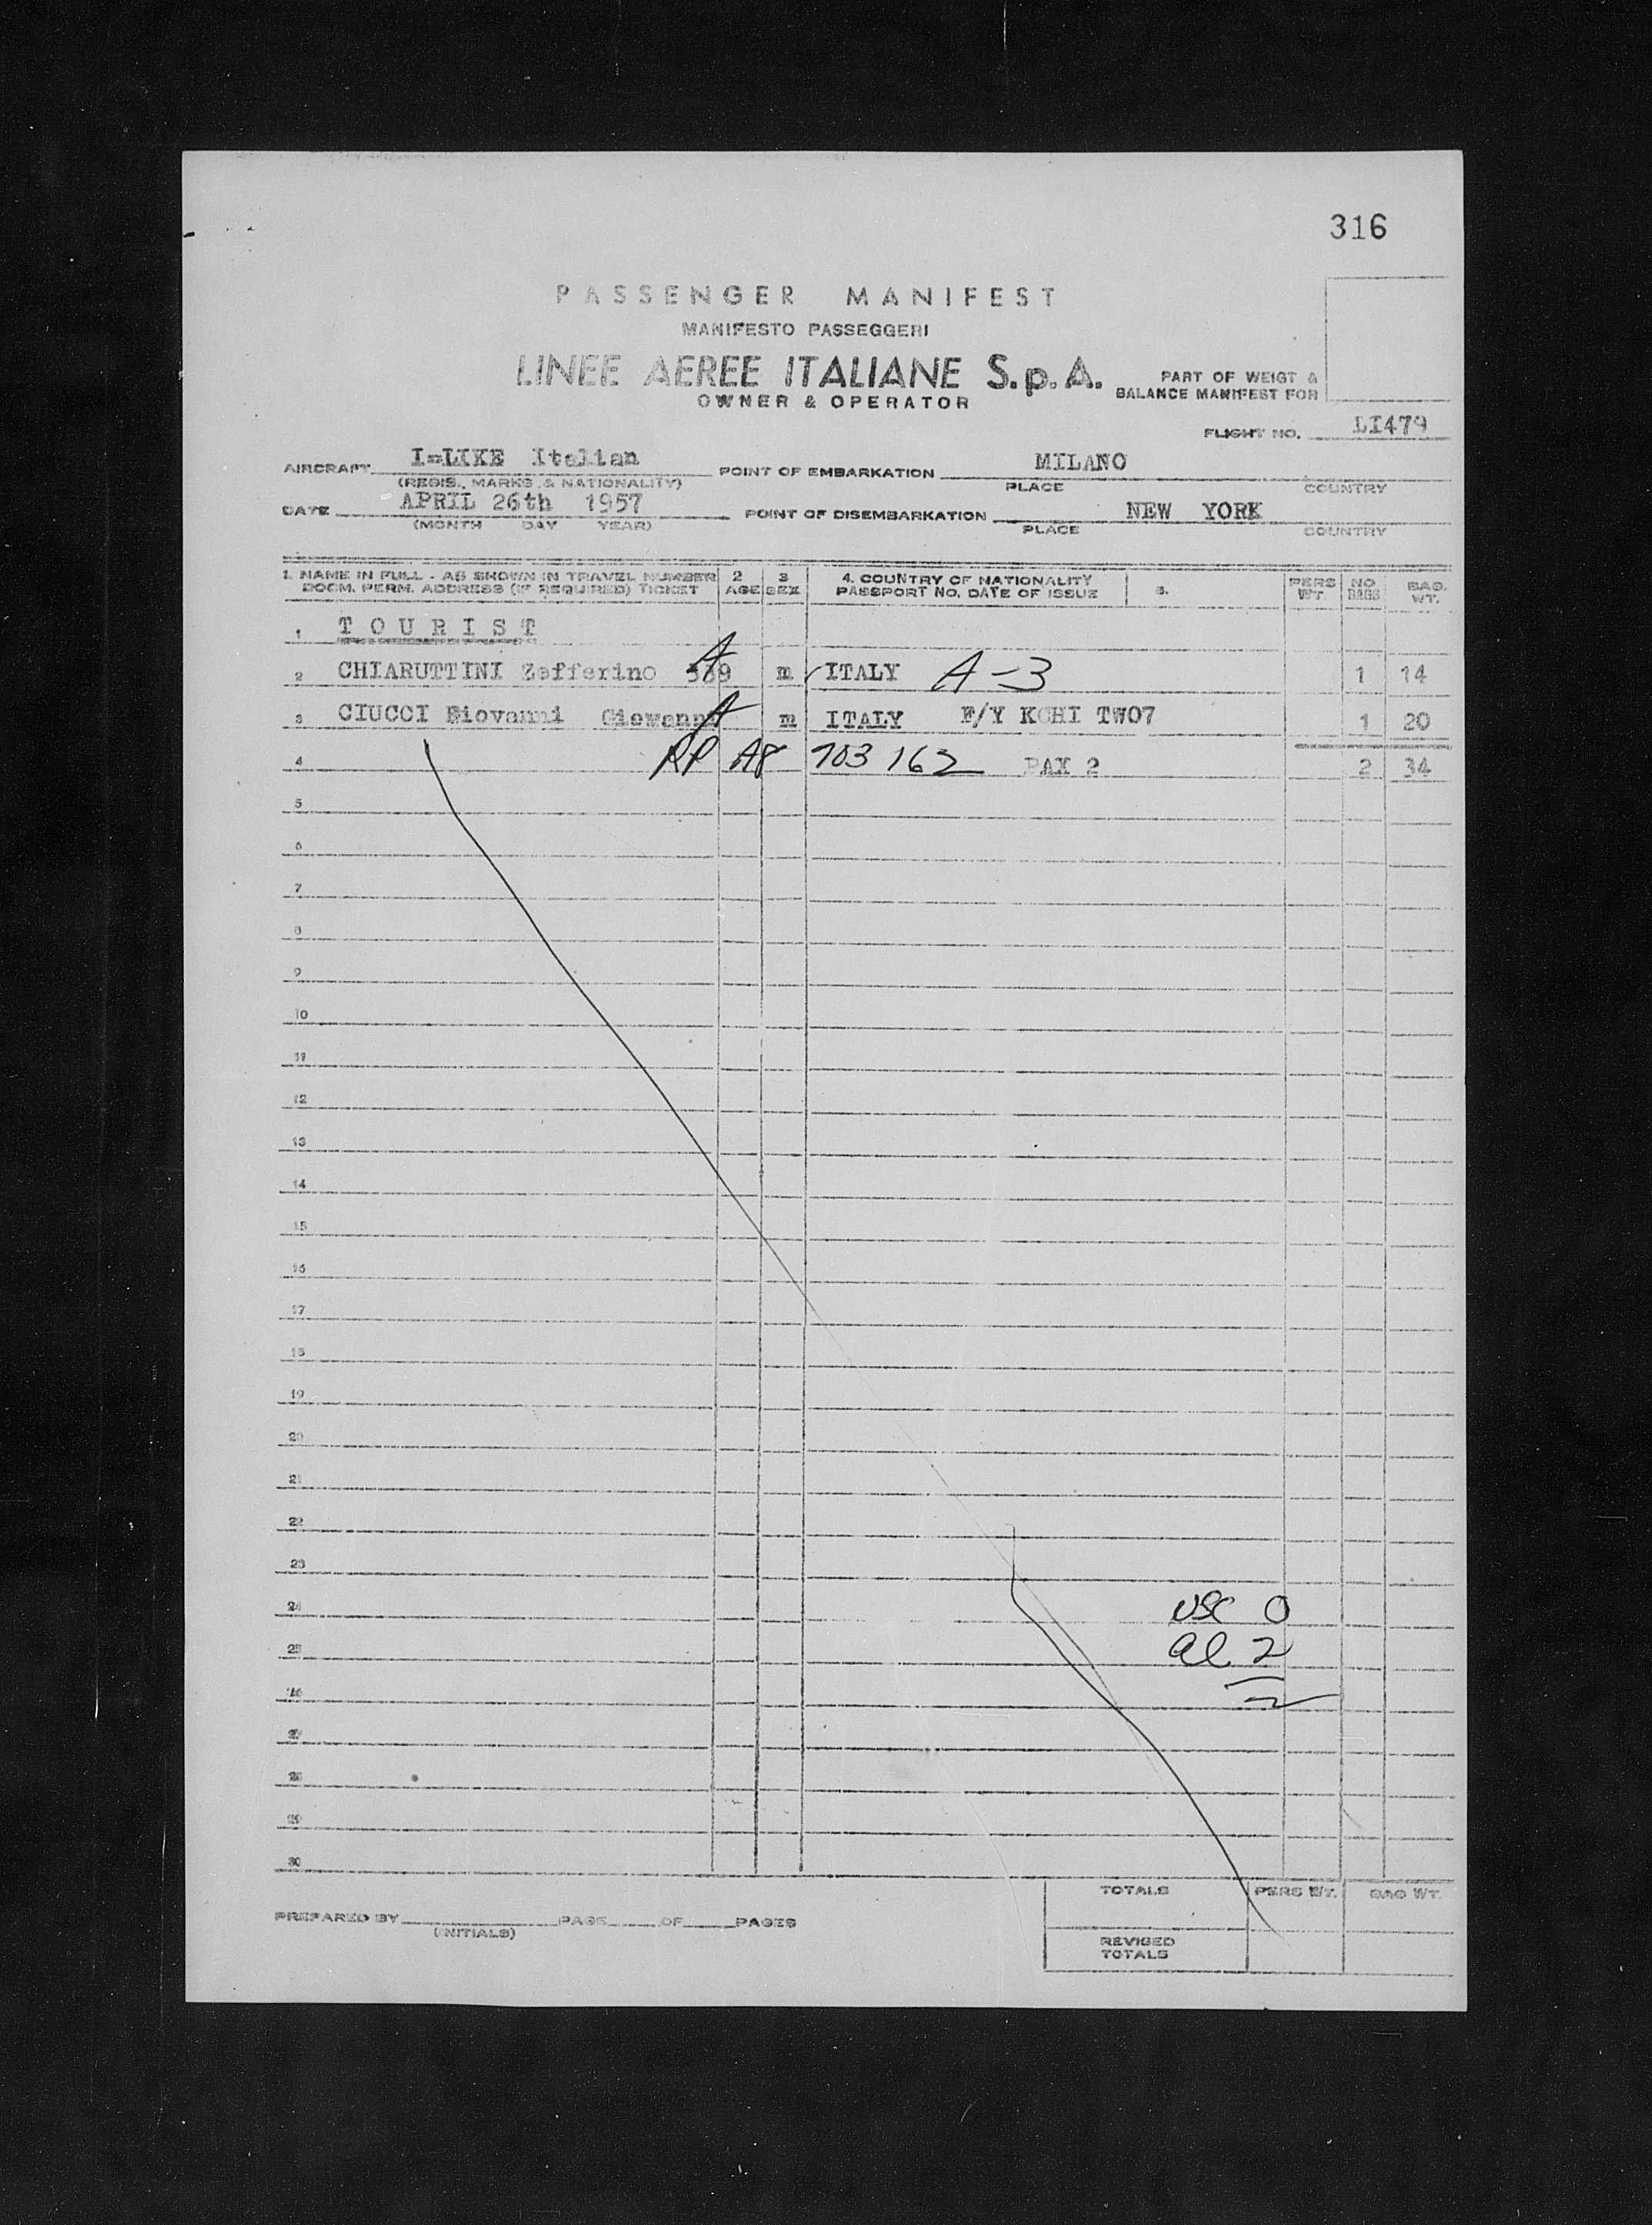 316
PASSENGER MANIFEST
MANIFESTO PASSEGGERI
LINEE AEREE ITALIANE S.p.A.
OWNER & OPERATOR
PART OF WEIGT &
BALANCE MANIFEST FOR
FLIGHT NO. LI479
AIRCRAFT I-LIKE Italian POINT OF EMBARKATION MILANO
(REGIS., MARKS, & NATIONALITY) PLACE COUNTRY
DATE APRIL 26th 1957 POINT OF DISEMBARKATION NEW YORK
(MONTH DAY YEAR) PLACE COUNTRY
1. NAME IN FULL - AS SHOWN IN TRAVEL NUMBER 2 3 4. COUNTRY OF NATIONALITY 5. PERS NO BAG.
DOCM. PERM. ADDRESS (IF REQUIRED) TICKET AGE SEX PASSPORT NO. DATE OF ISSUE WT. BAGS WT.
1 TOURIST
2 CHIARUTTINI Zefferino A m ITALY A-3 1 14
3 CIUCCI Giovanni A m ITALY F/Y KCHI TW07 1 20
4 PP A8 703 162 PAX 2 2 34
5
6
7
8
9
10
11
12
13
14
15
16
17
18
19
20
21
22
23
24 USC 0
25 al 2
26 2
27
28
29
30
TOTALS PERS WT. BAG WT.
PREPARED BY PAGE OF PAGES
(INITIALS)
REVISED
TOTALS